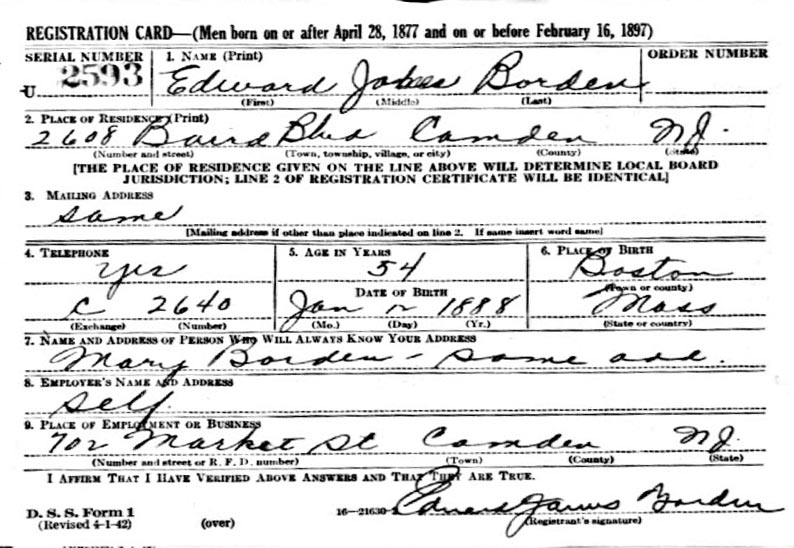 REGISTRATION CARD—(Men born on or after April 28, 1877 and on or before February 16, 1897)
SERIAL NUMBER 1. NAME (Print) ORDER NUMBER
U 2593 Edward James Borden
(First) (Middle) (Last)
2. PLACE OF RESIDENCE (Print)
2608 Baird Blvd Camden NJ.
(Number and street) (Town, township, village, or city) (County) (State)
[THE PLACE OF RESIDENCE GIVEN ON THE LINE ABOVE WILL DETERMINE LOCAL BOARD
JURISDICTION; LINE 2 OF REGISTRATION CERTIFICATE WILL BE IDENTICAL]
3. MAILING ADDRESS
same
[Mailing address if other than place indicated on line 2. If same insert word same]
4. TELEPHONE 5. AGE IN YEARS 6. PLACE OF BIRTH
yes 54 Boston
DATE OF BIRTH (Town or county)
C 2640 Jan 1888 Mass
(Exchange) (Number) (Mo.) (Day) (Yr.) (State or country)
7. NAME AND ADDRESS OF PERSON WHO WILL ALWAYS KNOW YOUR ADDRESS
Mary Borden - same add.
8. EMPLOYER'S NAME AND ADDRESS
self.
9. PLACE OF EMPLOYMENT OR BUSINESS
702 Market St Camden NJ.
(Number and street or R. F. D. number) (Town) (County) (State)
I AFFIRM THAT I HAVE VERIFIED ABOVE ANSWERS AND THAT THEY ARE TRUE.
D. S. S. Form 1 16—21630 Edward James Borden
(Revised 4-1-42) (over) (Registrant's signature)